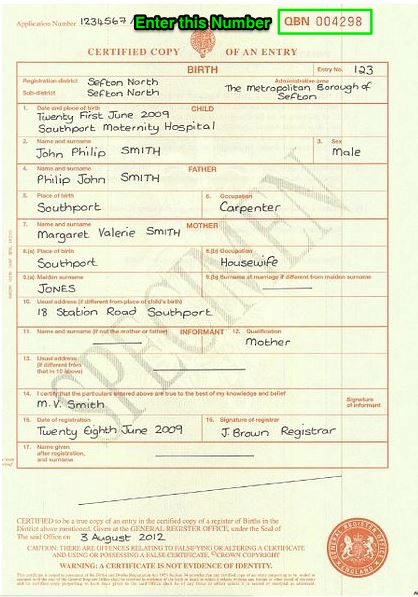 Enter this Number
Application Number 1234567/
QBN 004298
CERTIFIED COPY OF AN ENTRY
BIRTH
Entry No. 123
Registration district Sefton North
Administrative area
Sub-district Sefton North
The Metropolitan Borough of Sefton
1. Date and place of birth CHILD
Twenty First June 2009
Southport Maternity Hospital
2. Name and surname
3. Sex
John Philip SMITH
Male
4. Name and surname FATHER
Philip John SMITH
5. Place of birth
6. Occupation
Southport
Carpenter
7. Name and surname MOTHER
Margaret Valerie SMITH
8.(a) Place of birth
8.(b) Occupation
Southport
Housewife
9.(a) Maiden surname
9.(b) Surname at marriage if different from maiden surname
JONES
10. Usual address (if different from place of child's birth)
18 Station Road Southport
11. Name and surname (if not the mother or father) INFORMANT
12. Qualification
Mother
13. Usual address
(if different from
that in 10 above)
14. I certify that the particulars entered above are true to the best of my knowledge and belief
M.V. Smith
Signature
of informant
15. Date of registration
16. Signature of registrar
Twenty Eighth June 2009
J Brown Registrar
17. Name given
after registration,
and surname
SPECIMEN
CERTIFIED to be a true copy of an entry in the certified copy of a register of Births in the
District above mentioned. Given at the GENERAL REGISTER OFFICE, under the Seal of
The said Office on 3 August 2012
CAUTION: THERE ARE OFFENCES RELATING TO FALSIFYING OR ALTERING A CERTIFICATE
AND USING OR POSSESSING A FALSE CERTIFICATE. ©CROWN COPYRIGHT
WARNING: A CERTIFICATE IS NOT EVIDENCE OF IDENTITY.
GENERAL REGISTER OFFICE
ENGLAND